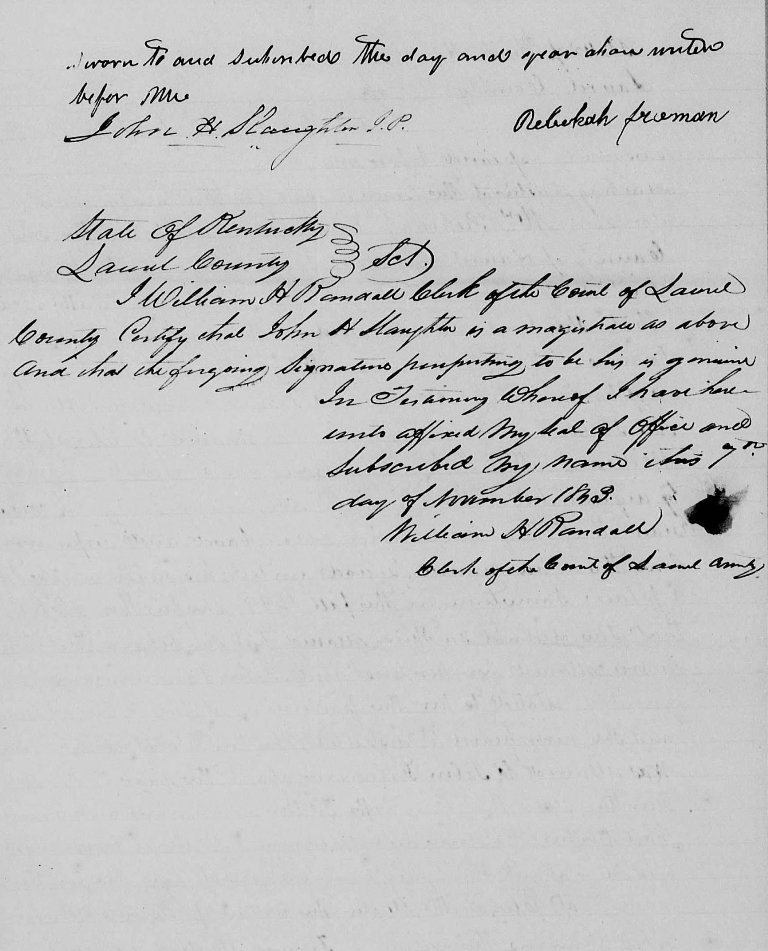 Sworn to and subscribed the day and year above written
befor me
John H. Slaughter J.P. Rebekah freeman
State Of Kentucky
Laurel County Sct.
I William H Randall Clerk of the Court of Laurel
County Certify that John H Slaughter is a magistrate as above
And that the forgoing Signature purporting to be his is genuine
In Testimony Whereof I have here-
unto affixed My Seal of Office and
Subscribed My name this 7th
day of November 1843.
William H Randall
Clerk of the Court of Laurel County